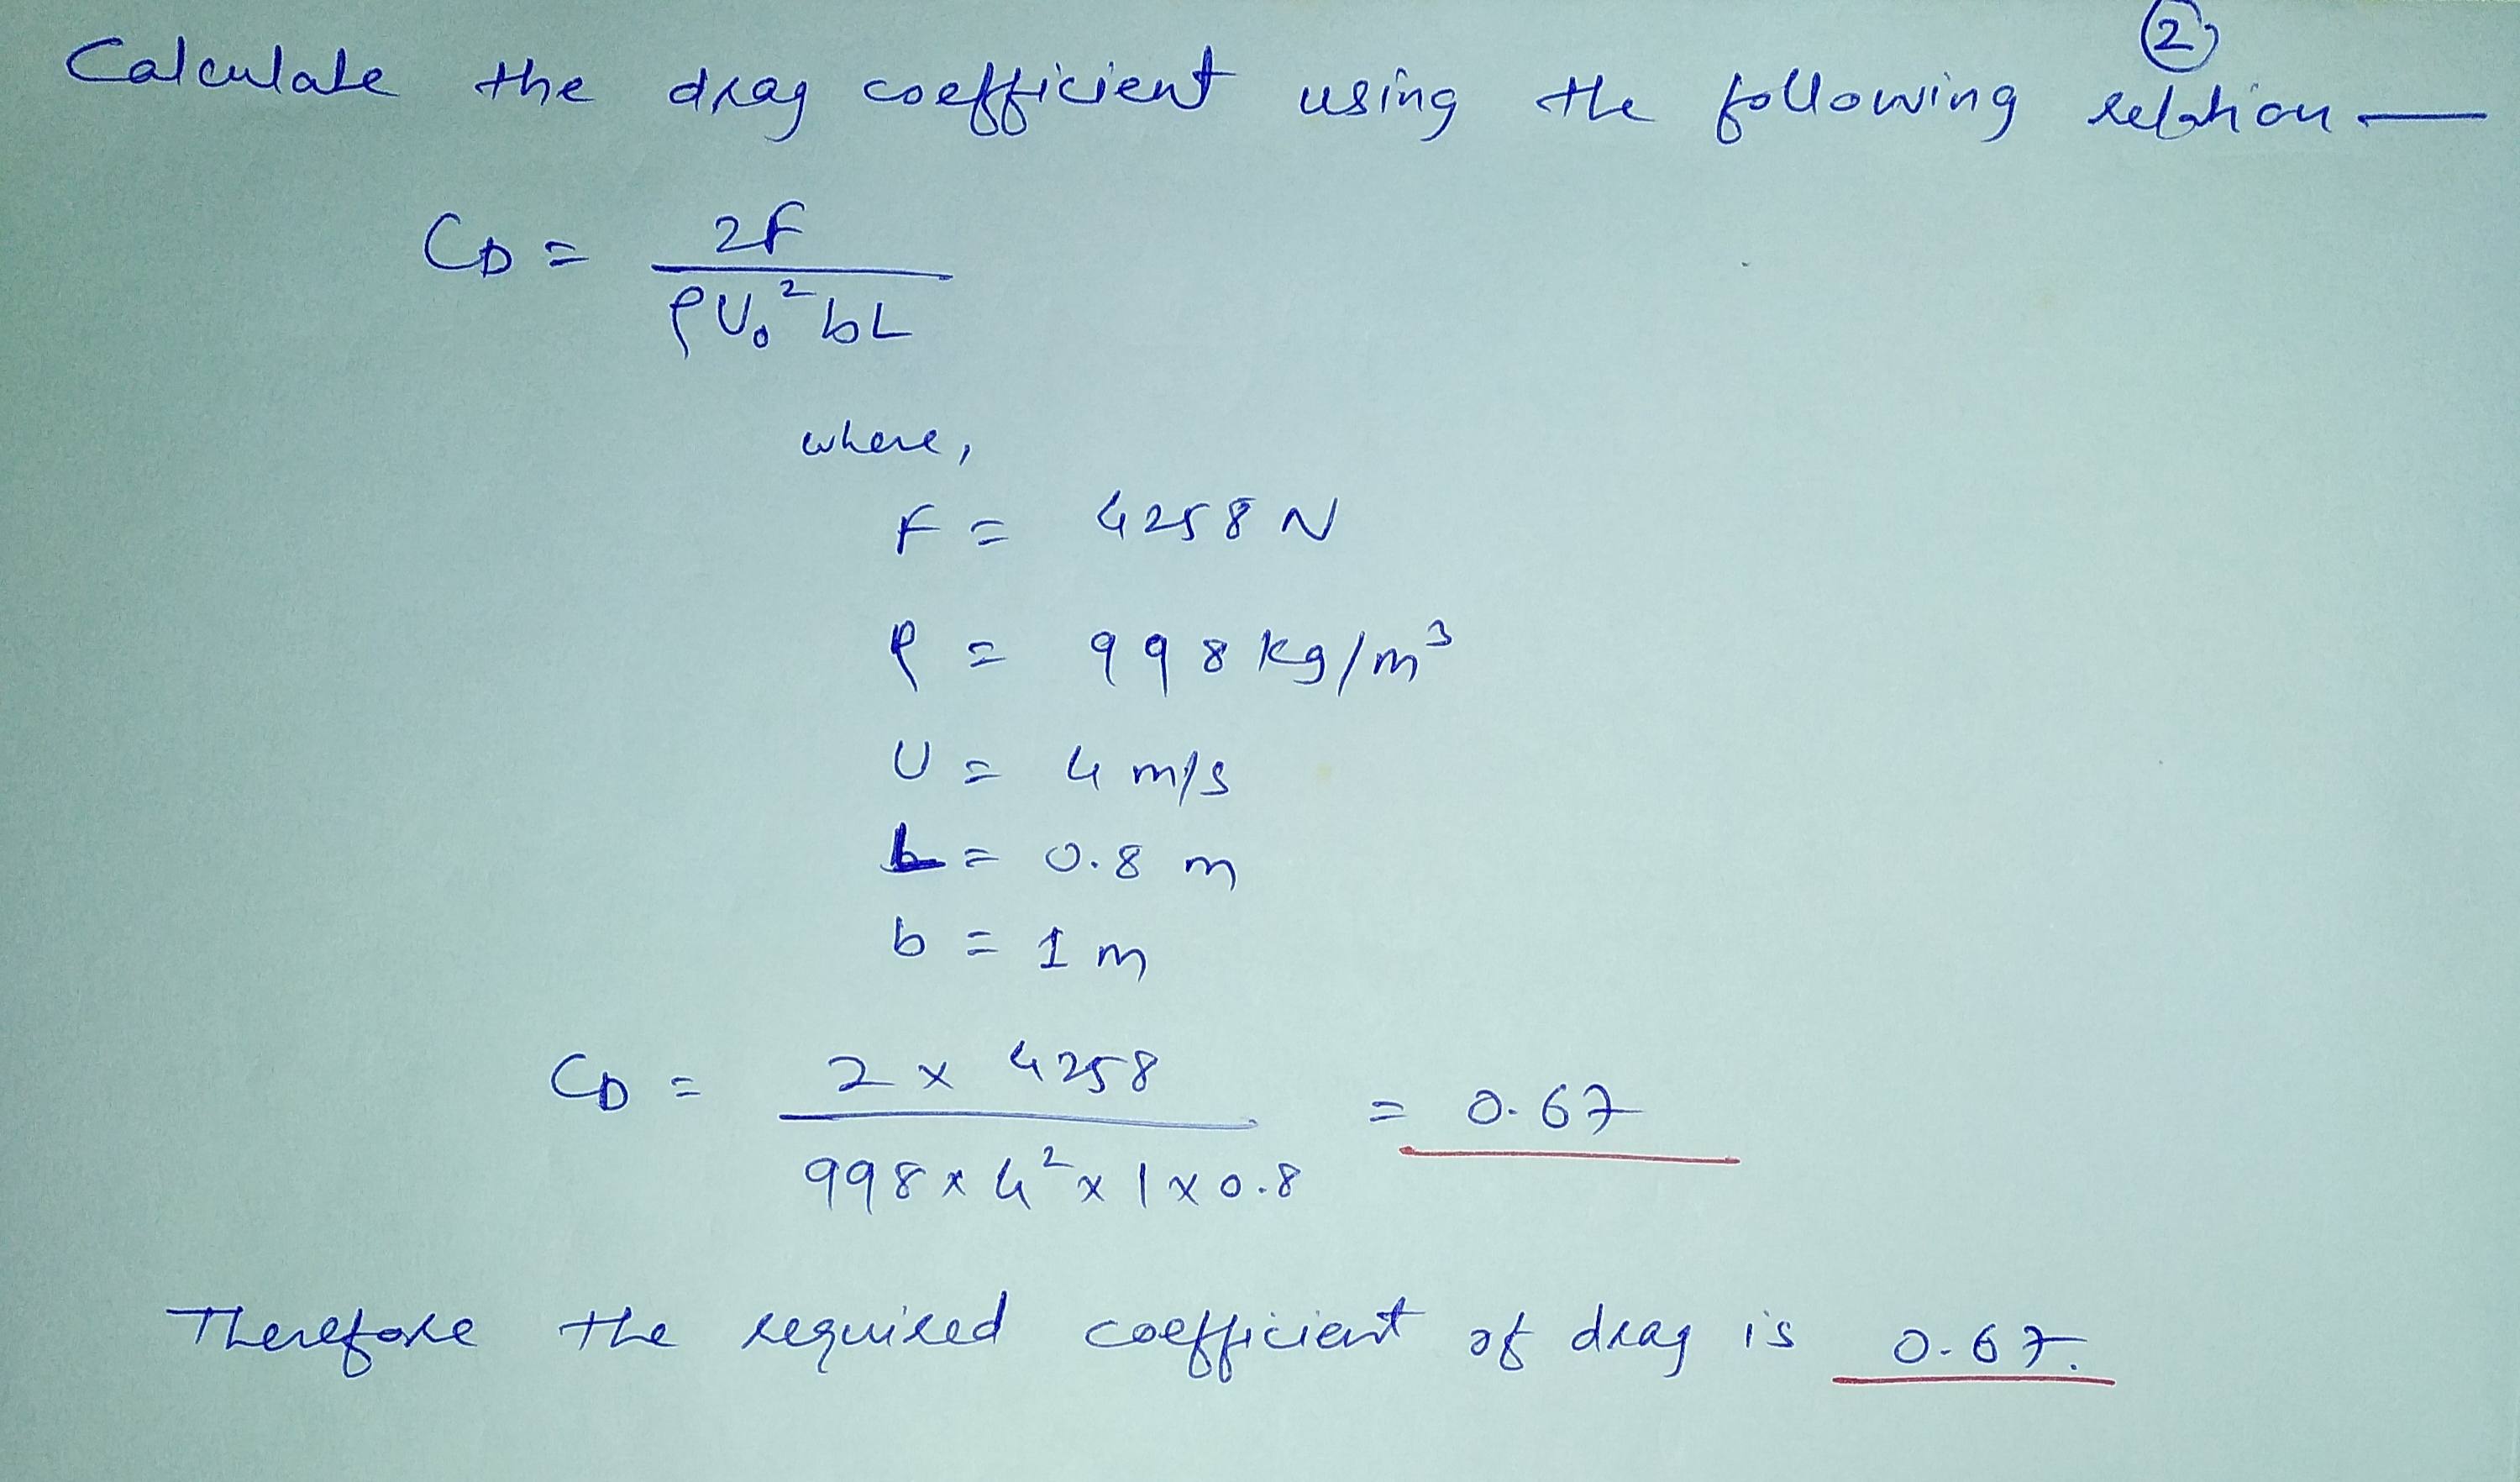 ②
Calculate the drag coefficient using the following relation —
CD = 2F / ρU₀²bL
where,
F = 4258 N
ρ = 998 kg/m³
U = 4 m/s
L = 0.8 m
b = 1 m
CD = 2 x 4258 / 998 x 4² x 1 x 0.8 = 0.67
Therefore the required coefficient of drag is 0.67.